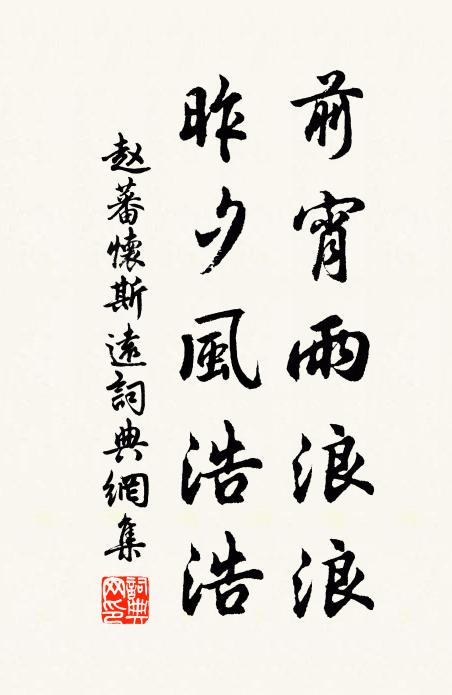 前宵雨浪浪
昨夕風浩浩
赵蕃懷斯遠詞典網集
詞典网印